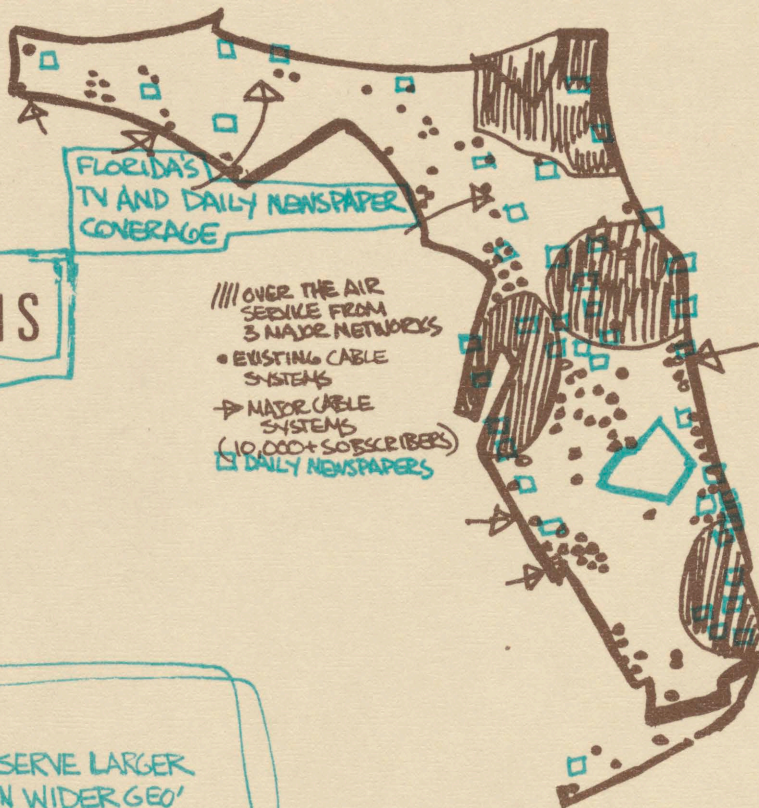 FLORIDA'S
TV AND DAILY NEWSPAPER
COVERAGE
IS
OVER THE AIR
SERVICE FROM
3 MAJOR NETWORKS
EXISTING CABLE
SYSTEMS
MAJOR CABLE
SYSTEMS
(10,000+ SUBSCRIBERS)
DAILY NEWSPAPERS
SERVE LARGER
N WIDER GEO'